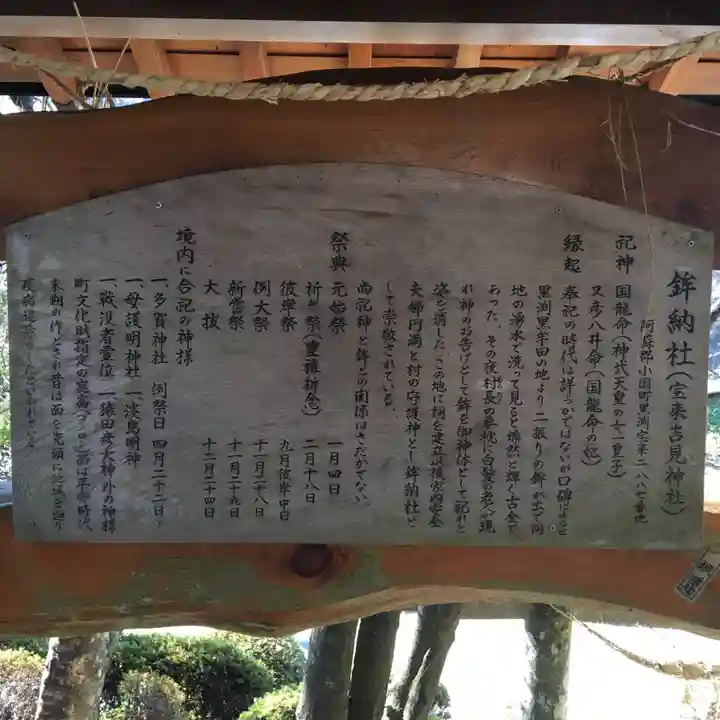 鉾納社(宝来吉見神社)
阿蘇郡小国町黒渕宝来二八八七番地
祀神 国龍命(神武天皇の七一皇子)
又彦八井命(国龍命の妃)
縁起 奉祀の時代は詳らかではないが口碑によると
黒渕黒牟田の地より二振りの鉾が出て同
地の湧水で洗って見ると燦然と輝く古金で
あった。その夜村長の夢枕に白髪の老人が現
れ神のお告げとして鉾を御神体として祀れと
姿を消した この地に祠を建立以後家内安全
夫婦円満と村の守護神とし鉾納社と
して崇敬されている。
両祀神と鉾との関係はさだかでない。
祭典 元始祭 一月四日
祈年祭(豊穣祈念) 二月十八日
彼岸祭 九月彼岸中日
例大祭 十一月二十八日
新嘗祭 十一月二十九日
大祓 十二月二十四日
境内に合祀の神様
一、多賀神社 例祭日 四月二十二日
一、母護明神社 一、淡島明神
一、戦没者霊位 一、猿田彦大神外の神様
町文化財指定の翁面は平安時代
末期の作とされ昔は面を先頭に地域を廻り
疫病退散をしたといわれている。